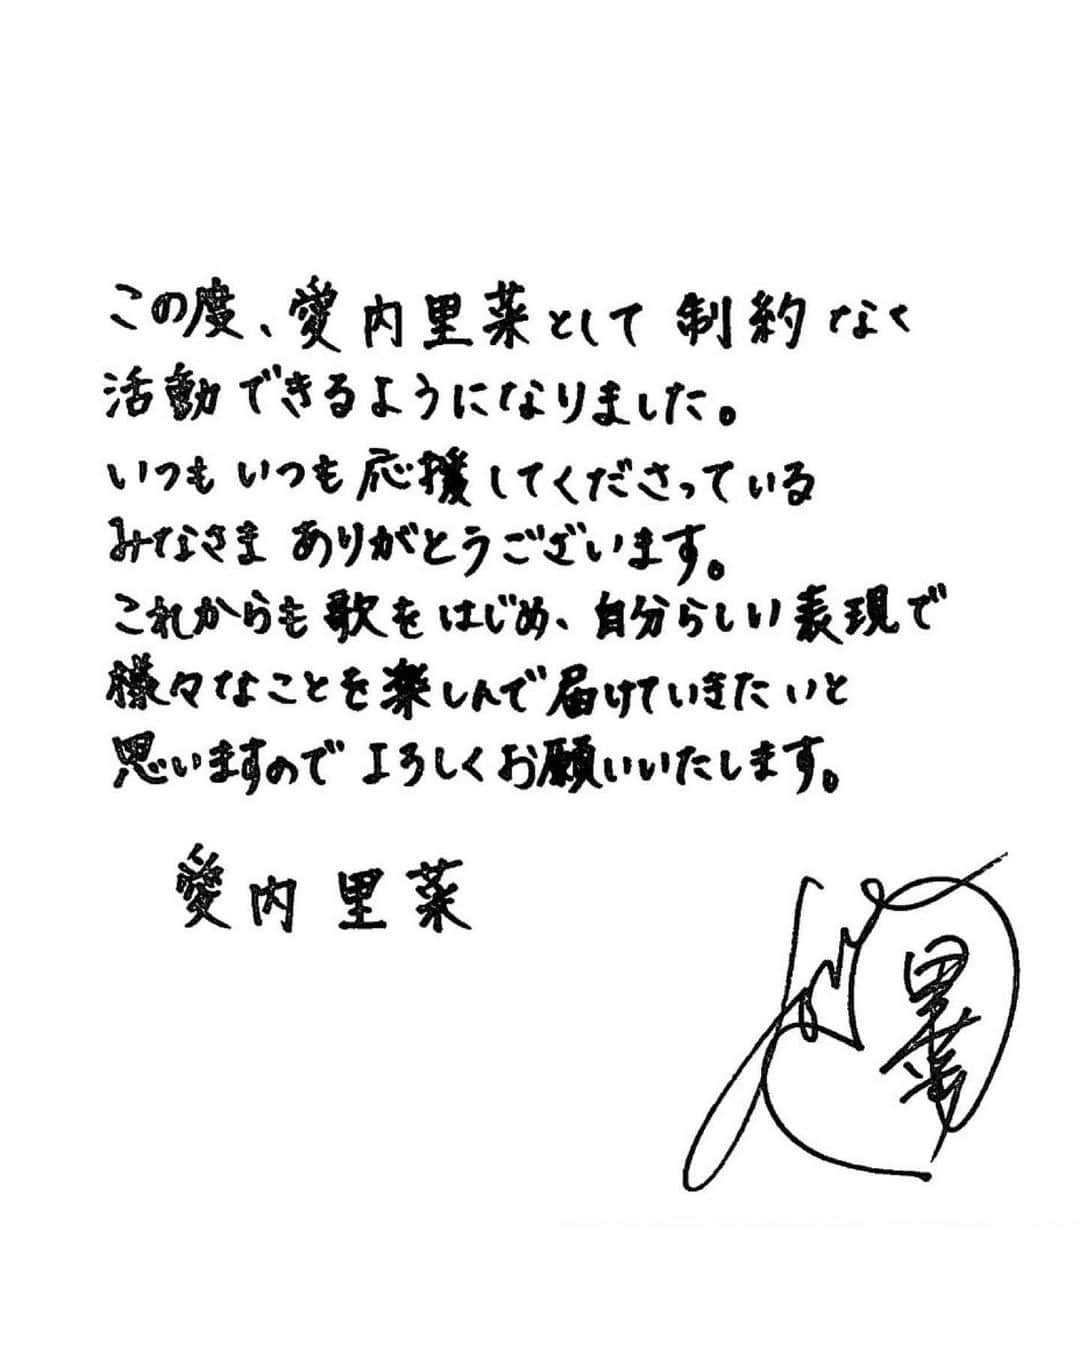 この度、愛内里菜として制約なく
活動できるようになりました。
いつもいつも応援してくださっている
みなさまありがとうございます。
これからも歌をはじめ、自分らしい表現で
様々なことを楽しんで届けていきたいと
思いますのでよろしくお願いいたします。
愛内里菜
里菜